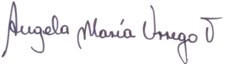 Angela María Urrego O